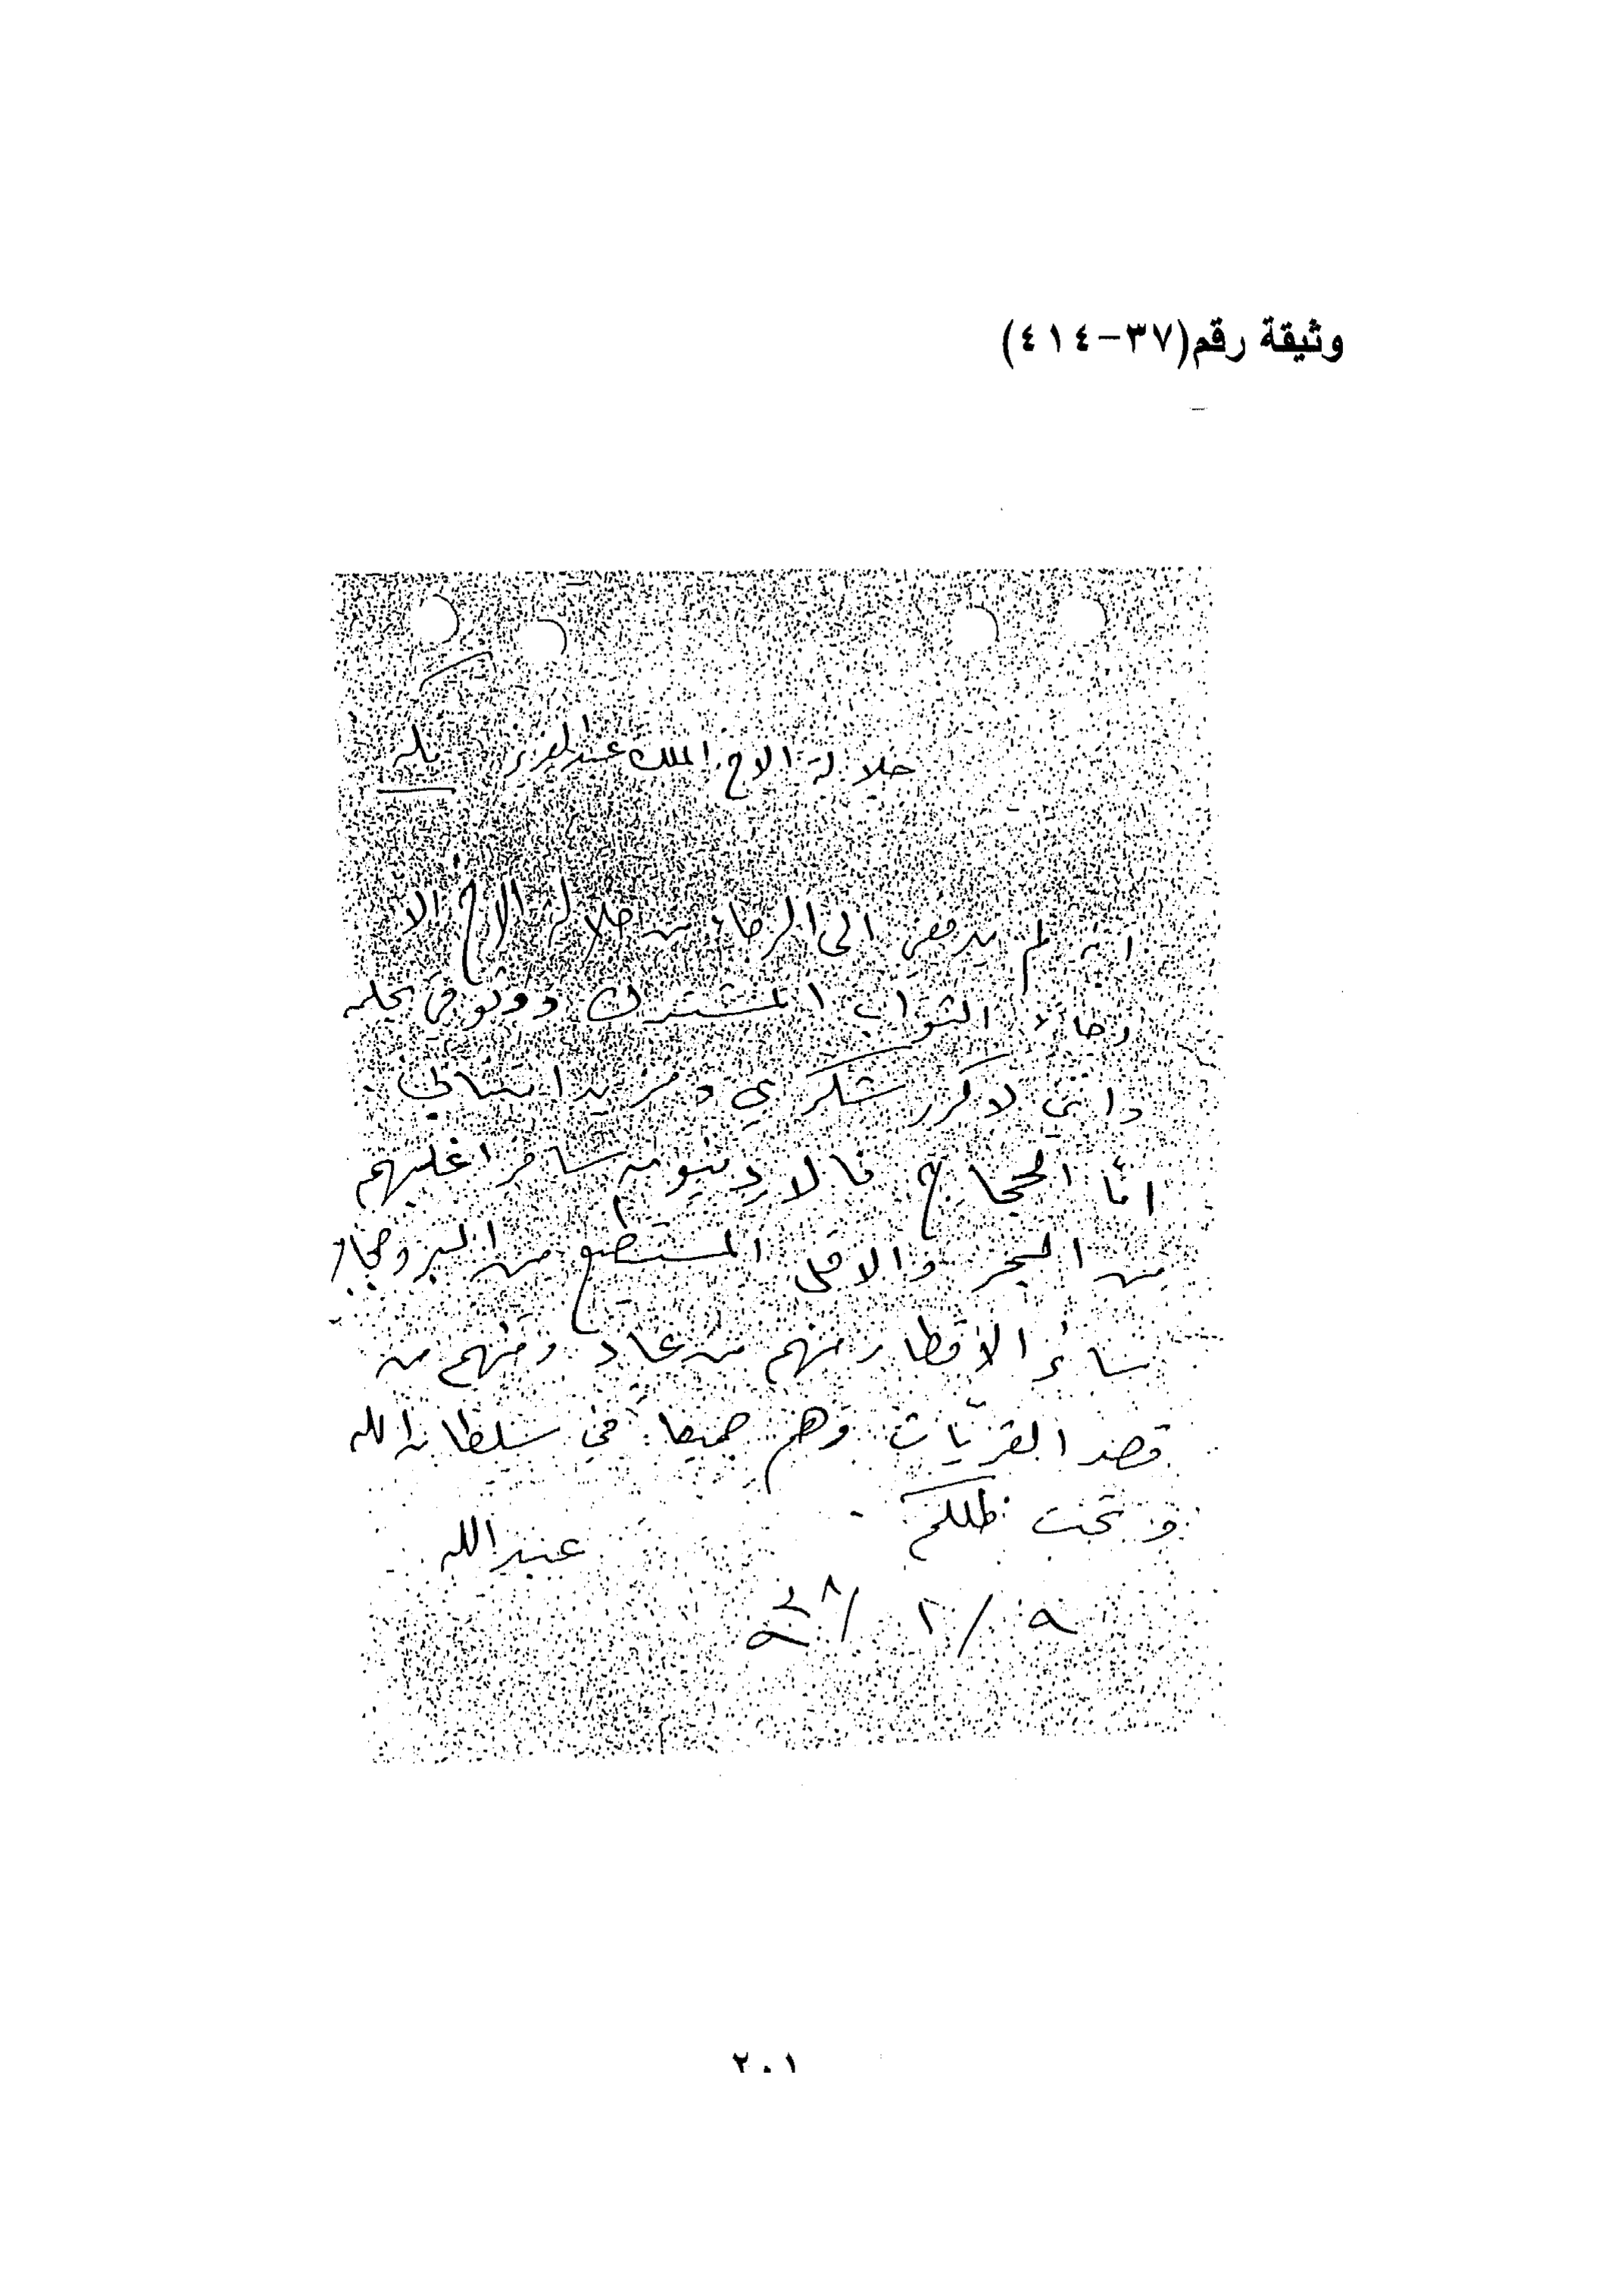 وثيقة رقم(٣٧-٤١٤)
جلالة الاخ الملك عبدالعزيز
انه لم يدفعني الى الرجاء من جلالة الاخ الا
رجاء الثواب المشترك ووثوقي بحلمه
واني لاكرر شكري ومزيد امتناني
امّا الحجاج فالاردنيون سافر اغلبهم
من البحر والاقل المستضع من البر وحجاج
سائر الاقطار منهم من عاد ومنهم من
قصد القريّات وهم جميعا في سلطان الله
وتحت ظلكم
عبدالله
٢٠١